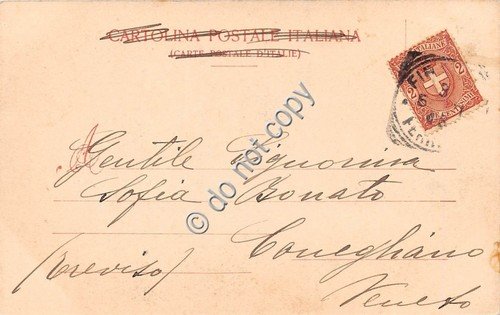 CARTOLINA POSTALE ITALIANA
(CARTE POSTALE D'ITALIE)
Gentile Signorina
Sofia Bonato
Conegliano
(Treviso)
Veneto
© do not copy